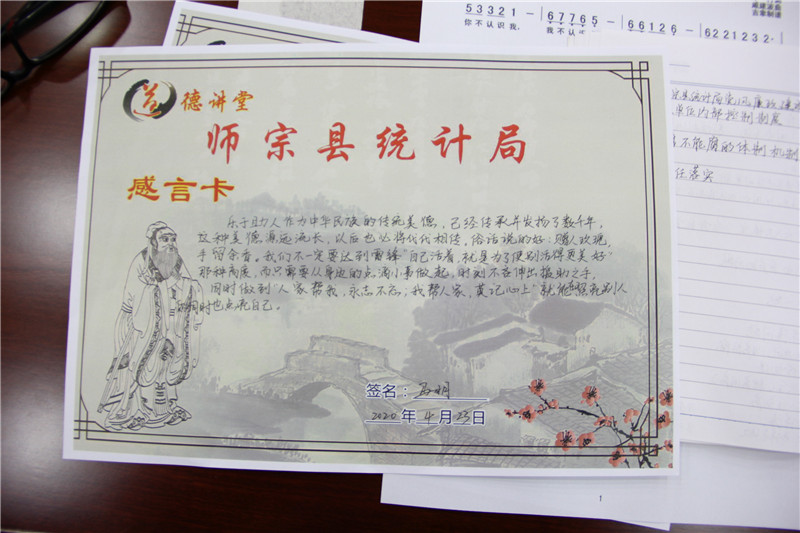 5 3 3 2 1 - 6 7 7 6 5 - 6 6 1 2 6 - 6 2 2 1 2 3 2 -
你不认识我,
道德讲堂
师宗县统计局
感言卡
乐于助人作为中华民族的传统美德,已经传承并发扬了数千年,
这种美德源远流长,以后也必将代代相传,俗话说的好:赠人玫瑰,
手留余香。我们不一定要达到雷锋"自己活着,就是为了使别活得更美好"
那种高度,而只需要从身边的点滴小事做起,时刻不忘伸出援助之手,
同时做到"人家帮我,永志不忘;我帮人家,莫记心上"就能照亮别人
的同时也点亮自己。
签名:
2020年4月23日
宗县统计局党风廉政
单位内部控制制度
不能腐的体制机制
任落实
1